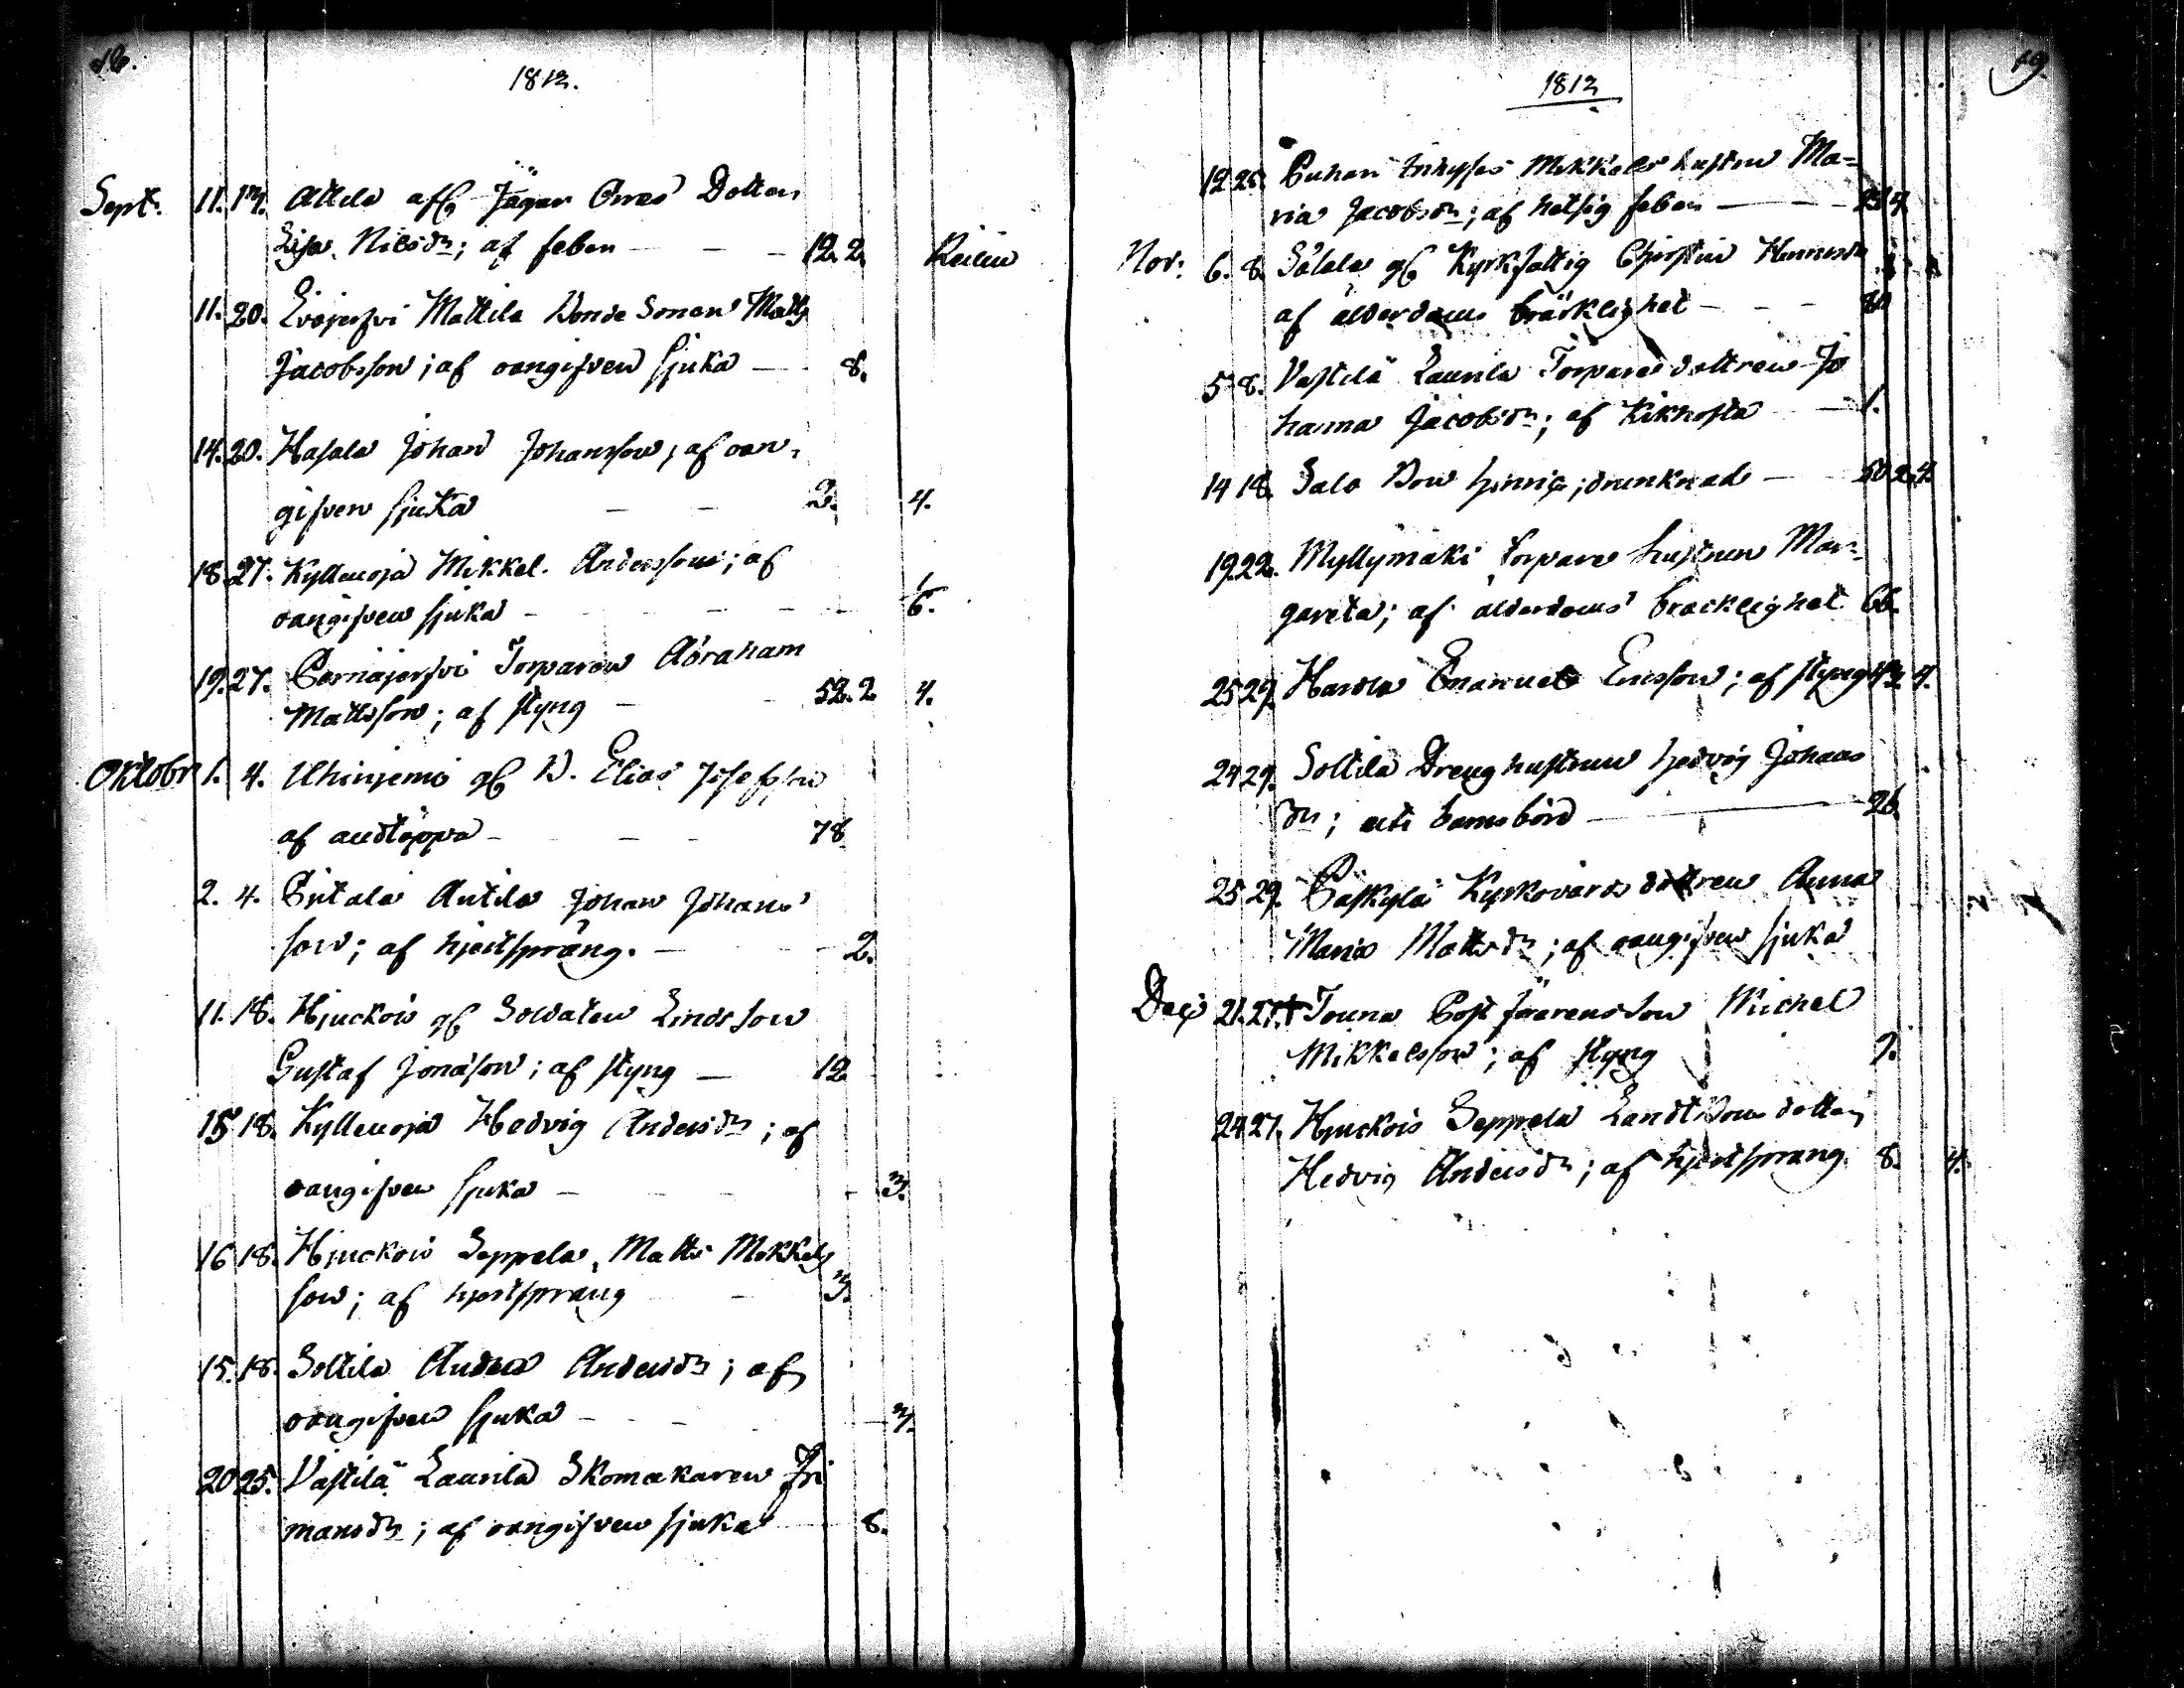 1812.
Sept. 11. 13. Attila Jägar Dotter
Lisa Nilsdr; af feber — — 12. 2.
11. 20. Evojerfvi Mattila Bonde Sonen Matts
Jacobsson; af oangifven sjuka — 8.
14. 20. Hasala Johan Johansson; af oan-
gifven sjuka — — 2. 4.
18. 27. Kylleneoja Mikkel Andersson; af
oangifven sjuka — — — 6.
19. 27. Torparen Abraham
Mattsson; af styng — 52. 2 4.
Oktobr 1. 4. B. Elias Josefsson
af andtäppa — — — 78
2. 4. Antila Johan Johans
son; af hjertsprång. — — 2.
11. 18. Hjuckois Soldaten Lindsson
Gustaf Jonasson; af styng — 12
15 18. Kylleneoja Hedvig Andersdr; af
oangifven sjuka — — 3.
16 18. Hjuckois Seppelä, Matts Mikkels
son; af hjertsprång — 3.
15. 18. Soltila Andersdr; af
oangifven sjuka — — 3.
20 25. Vastila Laurila Skomakaren
mansdr; af oangifven sjuka 8.
1812 19
12 25. Mikkels hustru Ma-
ria Jacobsdr; af hetsig feber — —
Nov: 6. 8. Kyrkfattig Christin
af ålderdoms bräcklighet — — 80
5 8. Vastilä Laurila Torpare dottren Jo
hanna Jacobsdr; af Kikhosta — 1.
14 18. Salo Bon Henric; drunknade — 50 2. 4.
19. 22. Myllymäki Torpare hustrun Mar-
gareta; af ålderdoms bräcklighet 66.
25 29. Emanuel Ericsson; af styng 4.
24 29. Soltila Dreng hustrun Hedvig Johans
dr; uti barnsbörd — 26.
25 29. Päskylä Kyrkovärds dottren Anna
Maria Mattsdr; af oangifven sjuka
Dec 21. 27. Post förarens Son Michel
Mikkelsson; af styng
24 27. Hjuckois Seppelä Landtbons dotter
Hedvig Andersdr; af hjertsprång 8. 4.